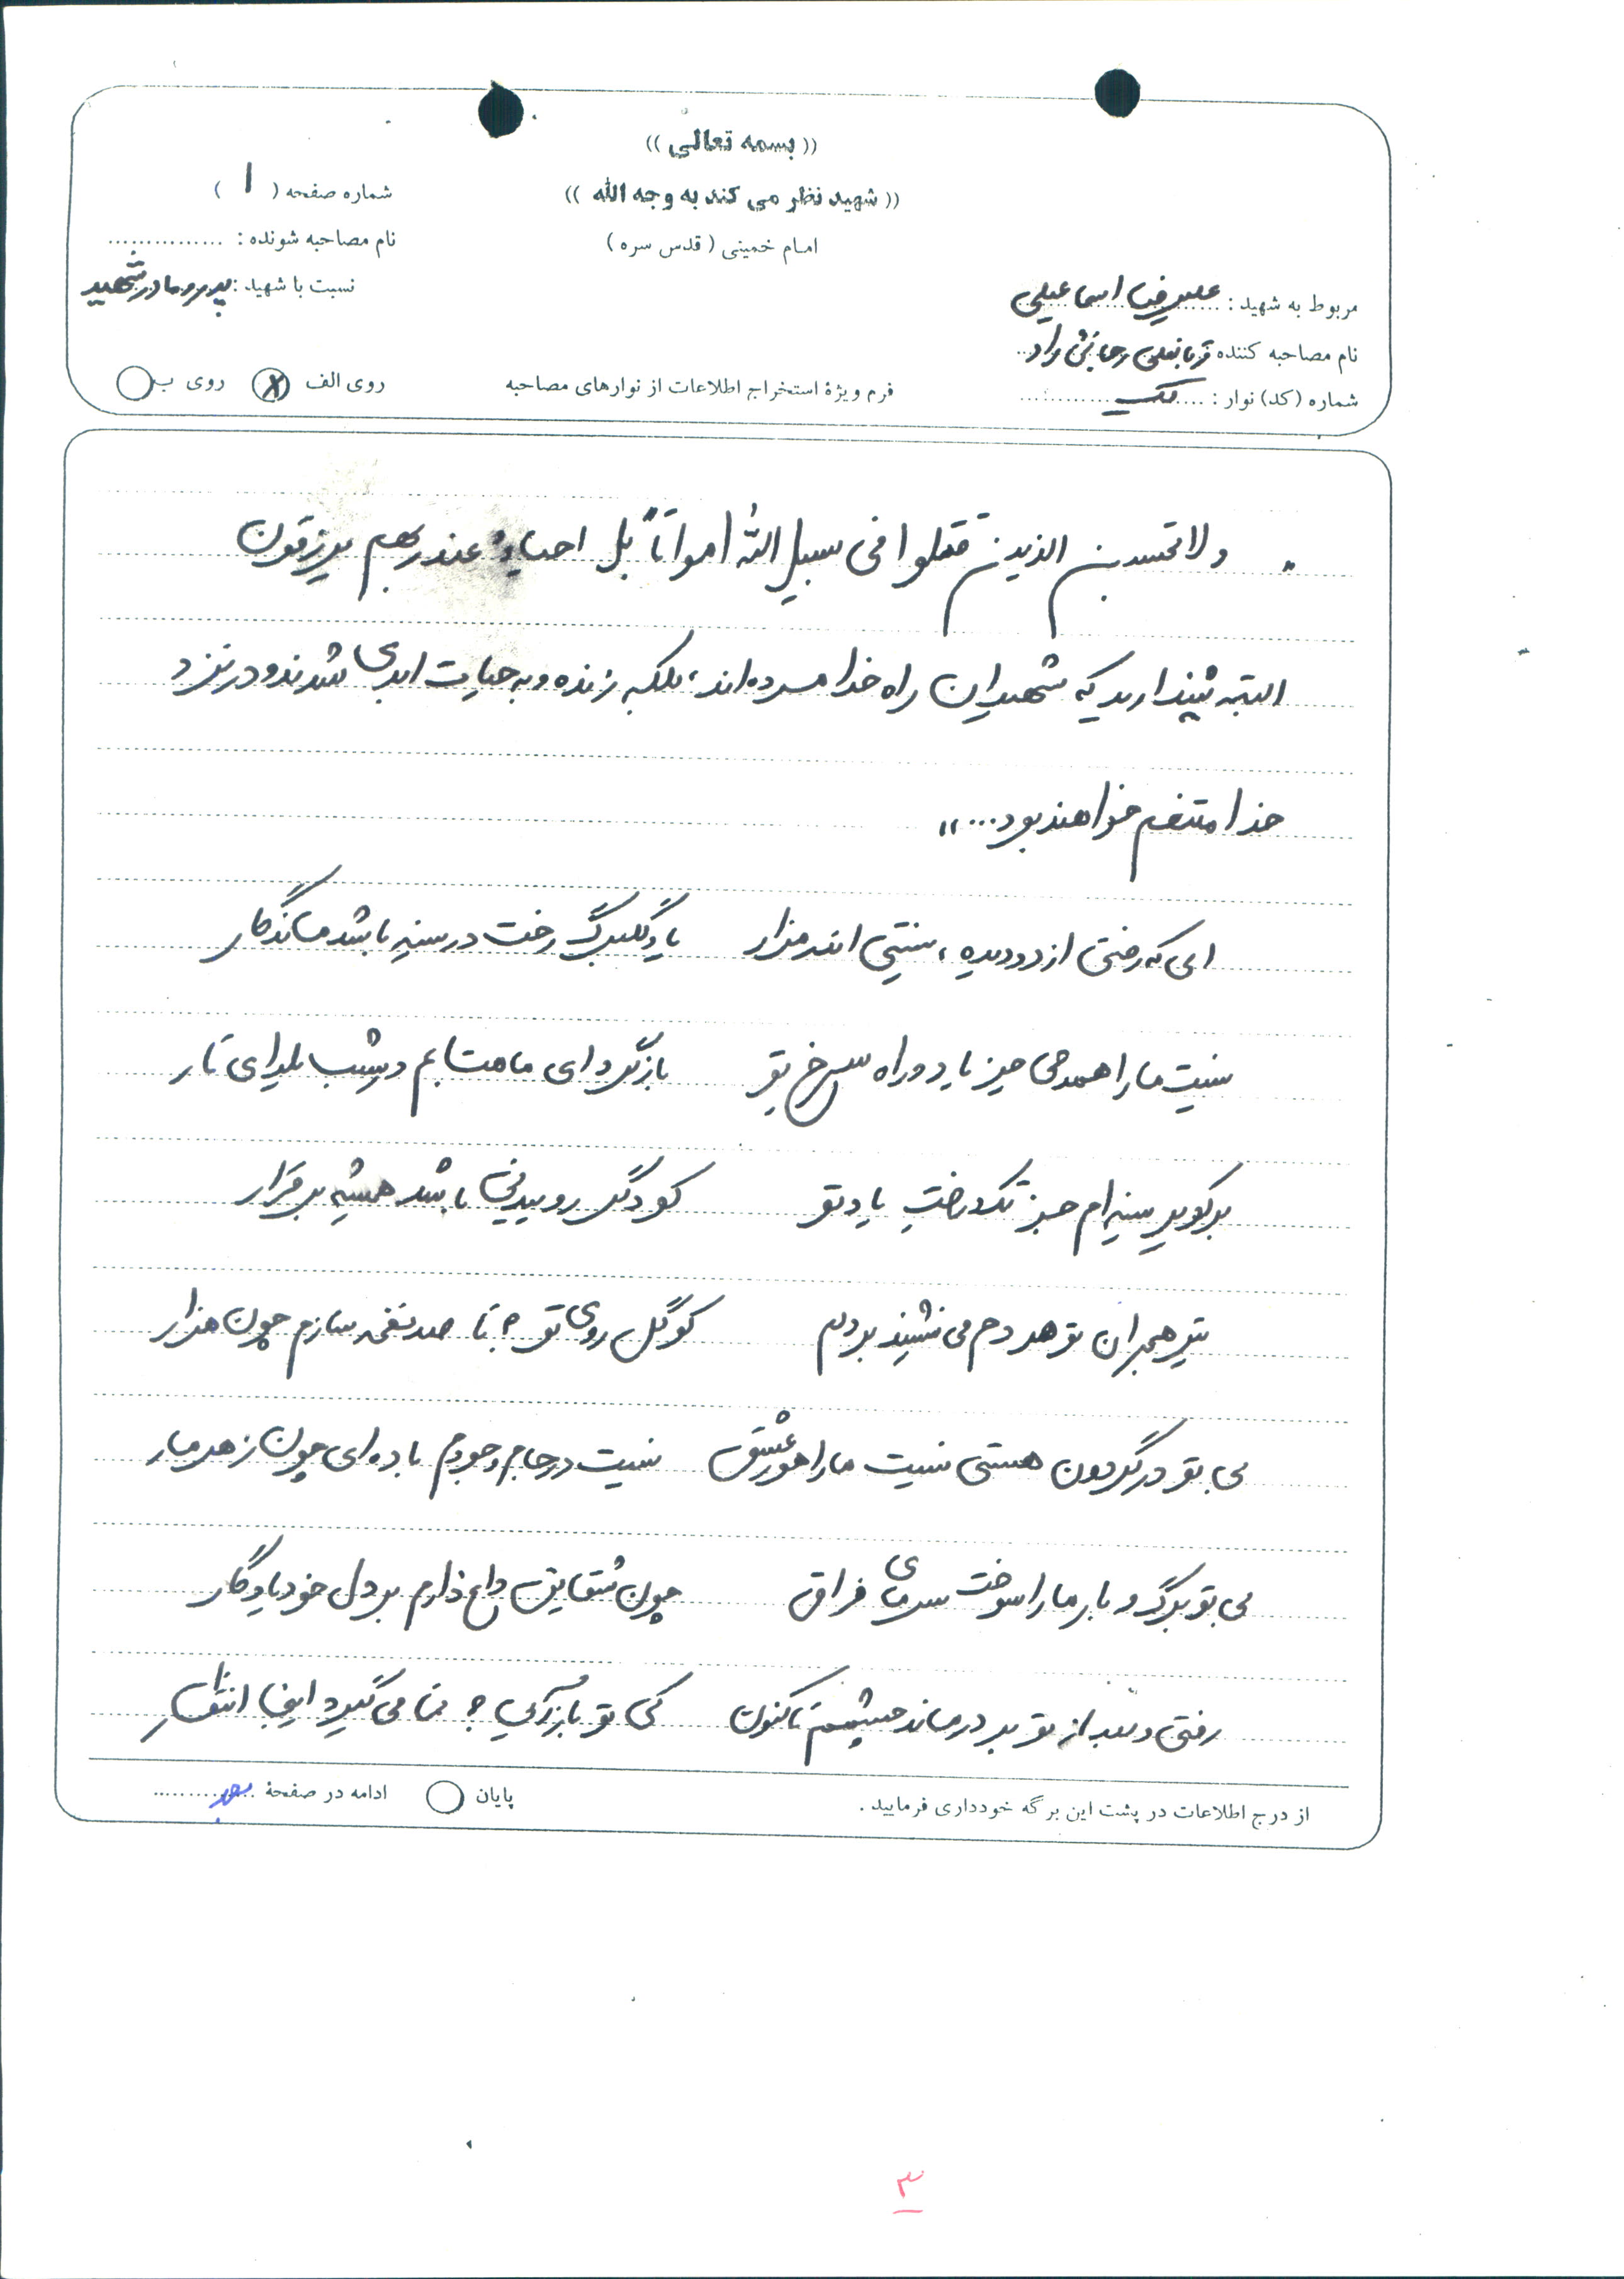 (( بسمه تعالی ))
(( شهید نظر می کند به وجه الله ))
امام خمینی ( قدس سره )
شماره صفحه ( ۱ )
نام مصاحبه شونده : ...............
نسبت با شهید : پدر و مادر شهید
مربوط به شهید : علیرضا اسماعیلی
نام مصاحبه کننده قربانعلی رجانش راد
شماره (کد) نوار : یک
فرم ویژۀ استخراج اطلاعات از نوارهای مصاحبه
روی الف ⊗ روی ب ○
" ولا تحسبن الذین قتلوا فی سبیل الله امواتاً بل احیاءٌ عند ربهم یرزقون
البته نپندارید که شهیدان راه خدا مرده‌اند، بلکه زنده و به حیات ابدی شدند و در نزد
خدا متنعم خواهند بود ... "
ای که رفتی از دو دیده ، نیستی اندر مزار یاد گلبرگ رخت در سینه باشد ماندگار
نیست ما را همدمی جز یاد و راه سرخ تو بازگرد ای ماهتابم در شب یلدای تار
بر کویر سینه‌ام جز تکدرخت یاد تو کو دگر روییدنی باشد همیشه برقرار
تیر هجران تو هر دم می نشیند بر دلم کو گل روی تو ؟ تا صد نغمه سازم چون هزار
بی تو در گردون هستی نیست ما را هور عشق نیست در جام وجودم باده‌ای چون زهر مار
بی تو برگ و بار ما را سوخت سرمای فراق چون شقایق داغ دارم بر دل خود یادگار
رفتی و بعد از تو بر در ماند چشمم تاکنون کی تو باز آیی ؟ تا می گیرد این انتظار
از درج اطلاعات در پشت این برگه خودداری فرمایید .
پایان ○ ادامه در صفحۀ بعد
۳